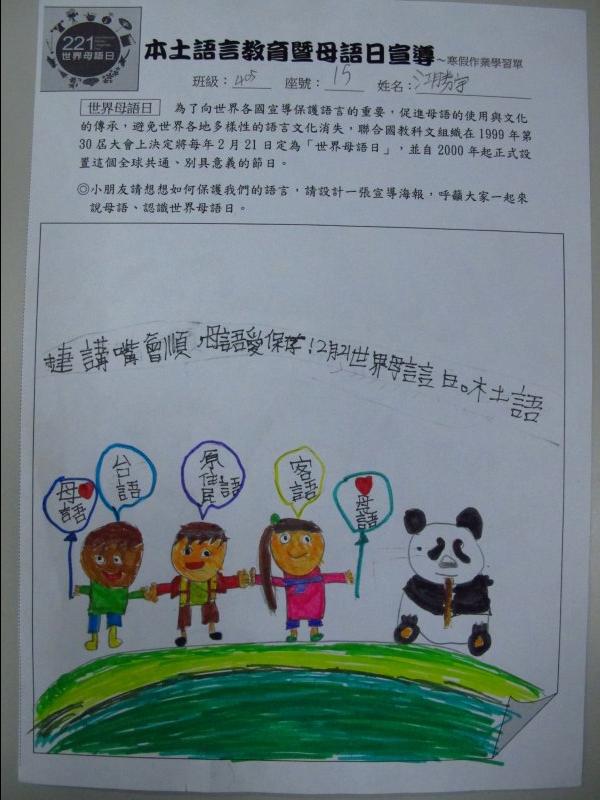 221
世界母語日
本土語言教育暨母語日宣導~寒假作業學習單
班級：405 座號：15 姓名：江勝宇
世界母語日 為了向世界各國宣導保護語言的重要，促進母語的使用與文化
的傳承，避免世界各地多樣性的語言文化消失，聯合國教科文組織在1999年第
30屆大會上決定將每年2月21日定為「世界母語日」，並自2000年起正式設
置這個全球共通、別具意義的節日。
◎小朋友請想想如何保護我們的語言，請設計一張宣導海報，呼籲大家一起來
說母語、認識世界母語日。
講嘴會順，母語愛保存！2月21世界母語言日。本土語
母語
台語
原住民語
客語
母語